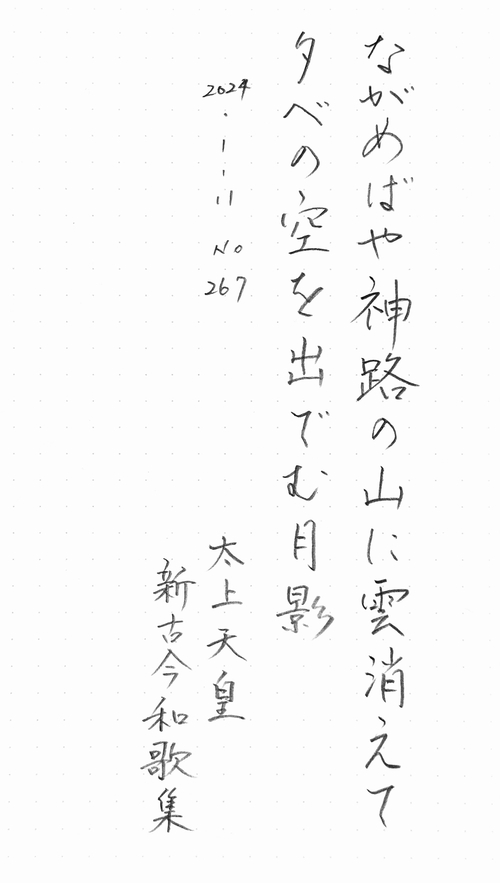 ながめばや神路の山に雲消えて
夕べの空を出でむ月影
2024・1・11 No 267
太上天皇
新古今和歌集